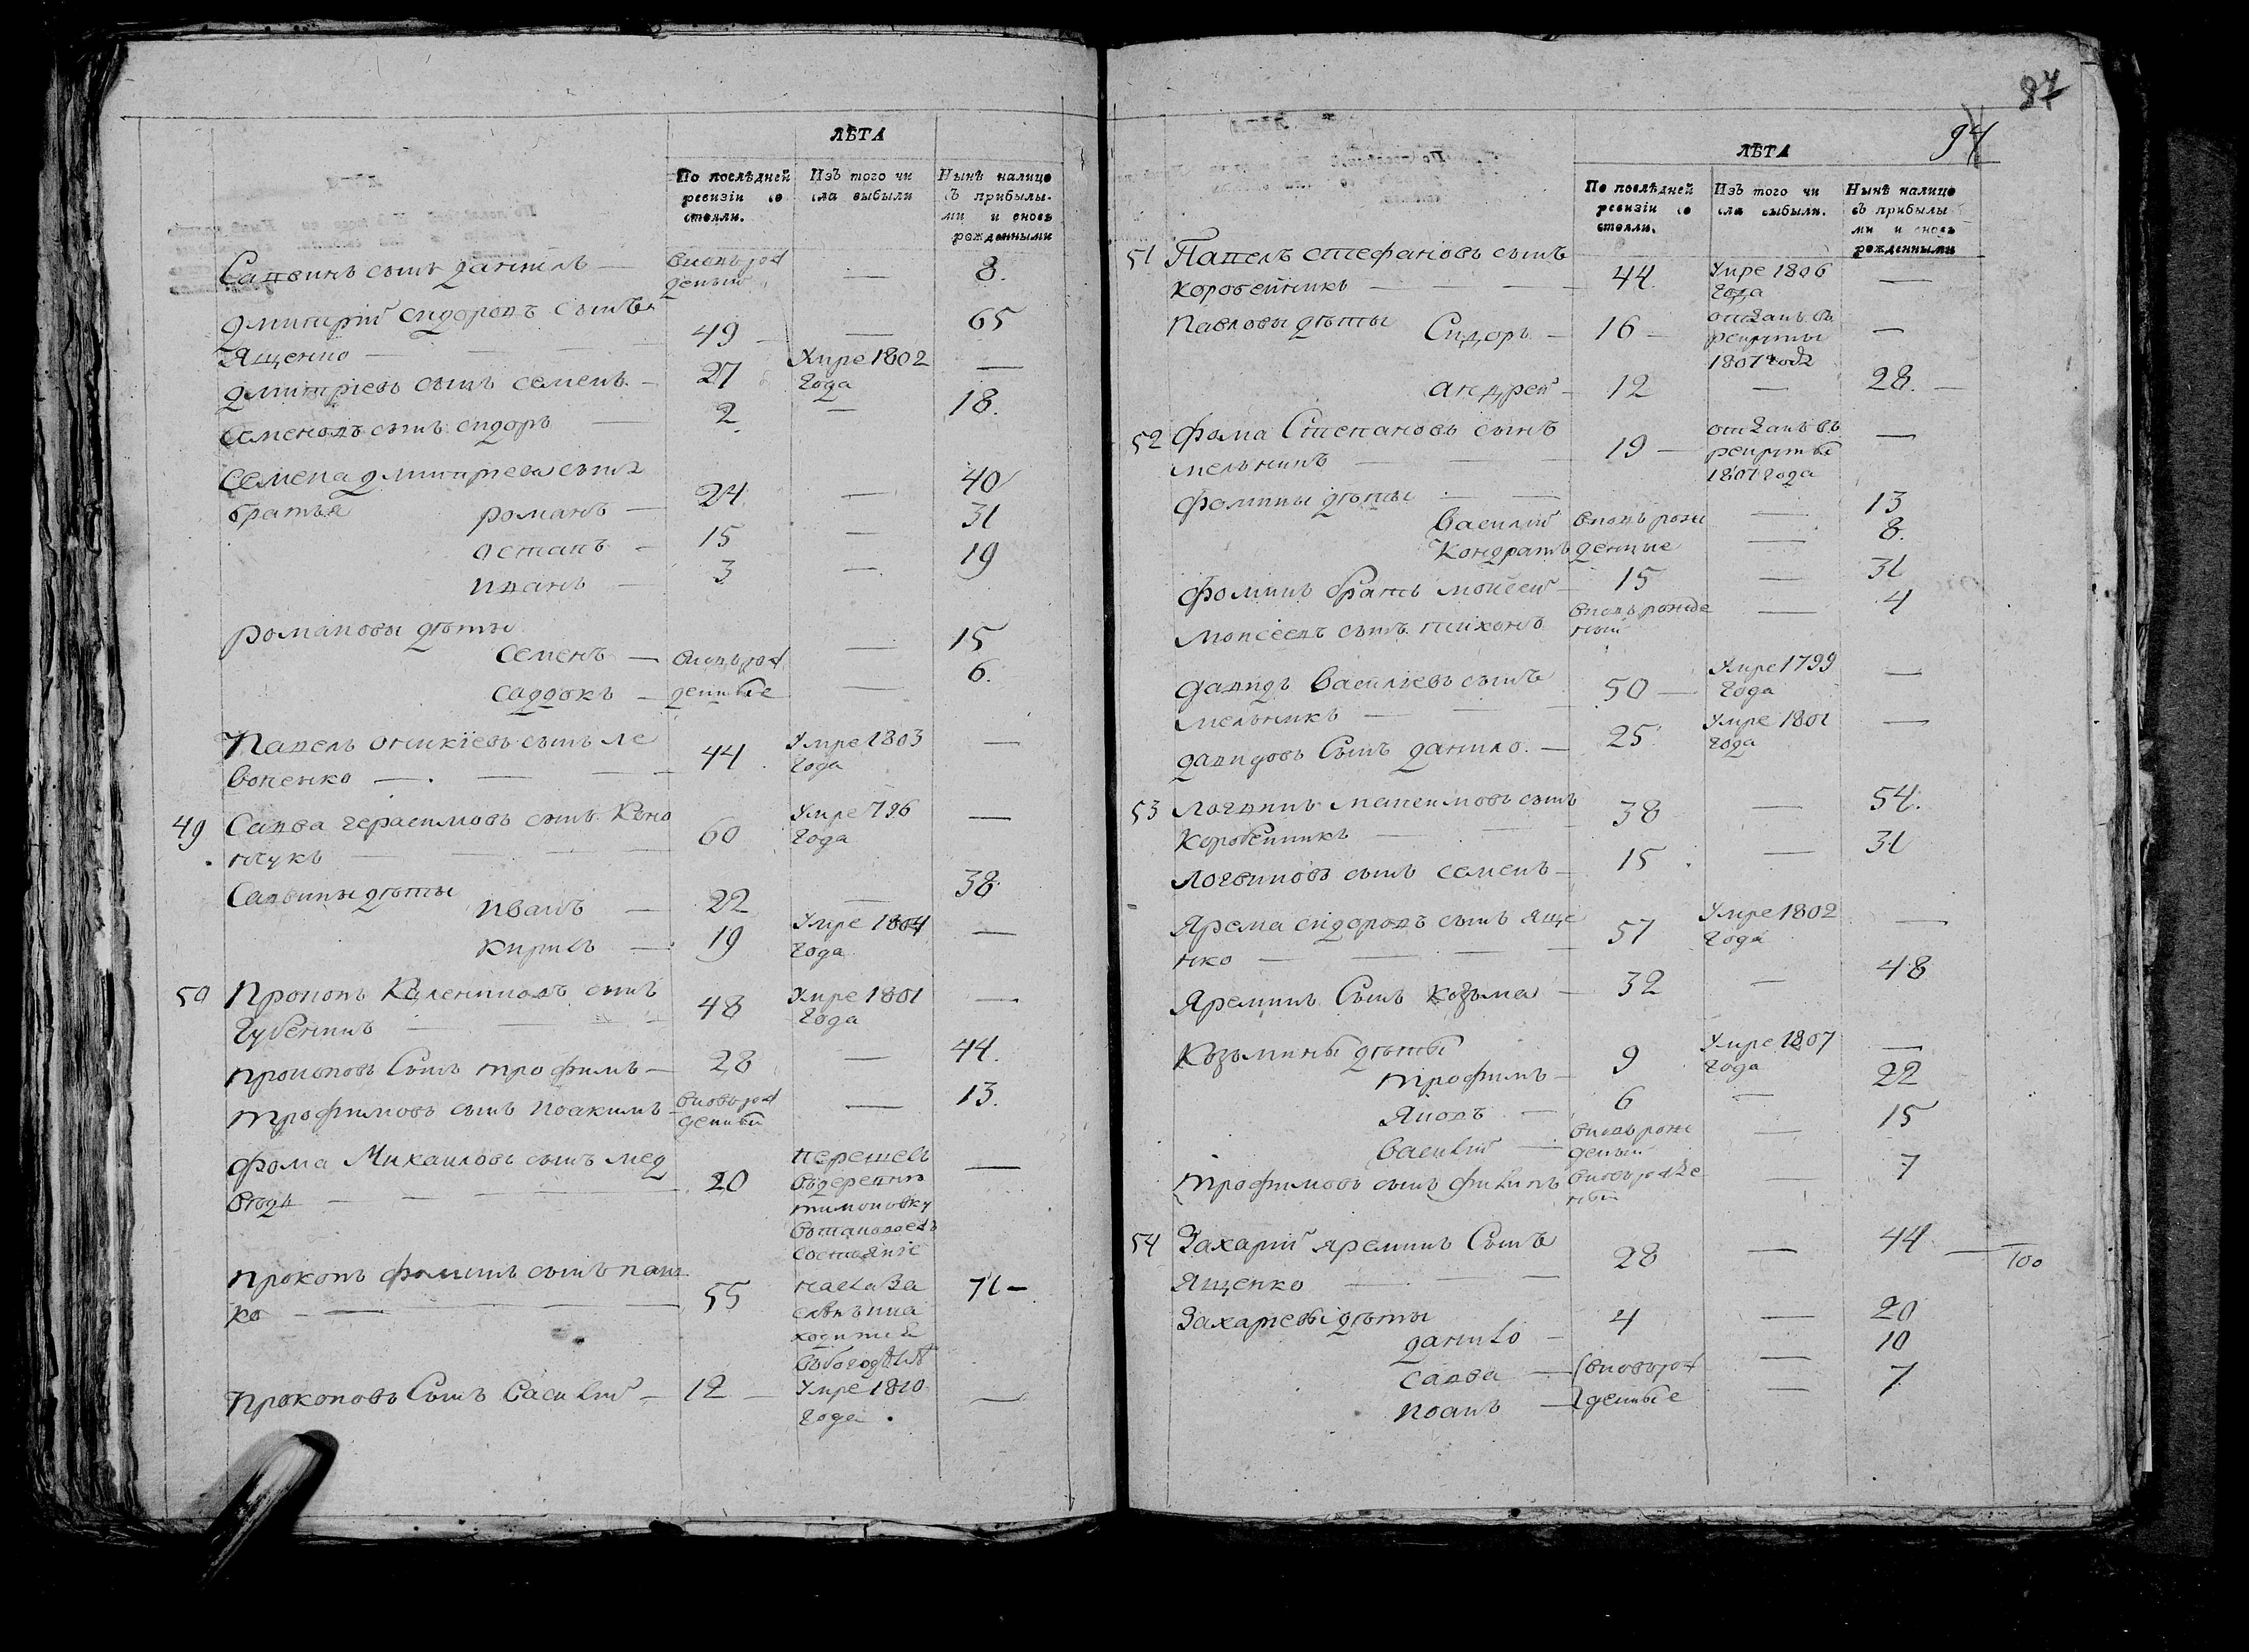 ЛѢТА
По послѣдней ревизіи со стояли.
Изъ того чи сла выбыли
Нынѣ налицо съ прибылы- ми и вновь рожденными
Савинъ сынъ Данилъ — вновь рож денный — 8.
Дмитрій Сидоровъ сынъ
Ященко — 49 — 65
Дмитріевъ сынъ Семенъ — 27 Умре 1802 года —
Семеновъ сынъ Сидоръ — 2 — 18.
Семена Дмитріева сына
братья Романъ — 24 — 40
Остапъ — 15 — 31
Иванъ — 3 — 19
Романовы дѣты
Семенъ — вновь рож — 15
Саддокъ — денные — 6.
Павелъ Оникіевъ сынъ Ле
воненко — 44 Умре 1803 года —
49 Савва Герасимовъ сынъ Коно
нчукъ — 60 Умре 796 года —
Саввины дѣты
Иванъ — 22 — 38
Кирилъ — 19 Умре 1804 года —
50 Прокопъ сынъ
Губенникъ — 48 Умре 1801 года —
Прокоповъ сынъ Трофимъ — 28 — 44.
Трофимовъ сынъ Иоакимъ — вновь рож денный — 13.
Фома Михаиловъ сынъ Мед
вѣдь — 20 перешелъ въ деревню Тимоновку состояніе —
Прокопъ Фоминъ сынъ
ко — 55 71 —
Прокоповъ сынъ Василій — 12 — Умре 1810 года —
87
94
ЛѢТА
По послѣдней ревизіи со стояли.
Изъ того чи сла выбыли.
Нынѣ налицо съ прибылы ми и вновь рожденными
51 Павелъ Стефановъ сынъ
Коробейникъ — 44. Умре 1806 года —
Павловы дѣты Сидоръ — 16 — отданъ въ рекруты 1807 года —
Андрей — 12 — 28. —
52 Фома Степановъ сынъ
Мельникъ — 19 — отданъ въ рекруты 1807 года —
Фомины дѣты
Василій вновь рож — 13
Кондратъ денные — 8.
Фоминъ братъ Мойсей — 15 — 31
Моисеевъ сынъ Тихонъ вновь рожде ный — 4
Давидъ Василіевъ сынъ
Мельникъ — 50 — Умре 1799 года —
Давидовъ сынъ Данило — 25. Умре 1801 года —
53 Логвинъ Максимовъ сынъ
Коробейникъ — 38 — 54.
Логвиновъ сынъ Семенъ — 15 — 31
Ярема Сидоровъ сынъ Яще
нко — 57 Умре 1802 года —
Яреминъ сынъ Козьма — 32 — 48
Козьмины дѣты
Трофимъ — 9 Умре 1807 года —
Яковъ — 6 — 22
Василій — вновь рож денный — 15
Трофимовъ сынъ Филипъ вновь рожде ный — 7
54 Захарій Яреминъ сынъ
Ященко — 28 — 44 — 100
Захаріевы дѣты
Данило — 4 — 20
Савва — вновь рож — 10
Иванъ — денные — 7